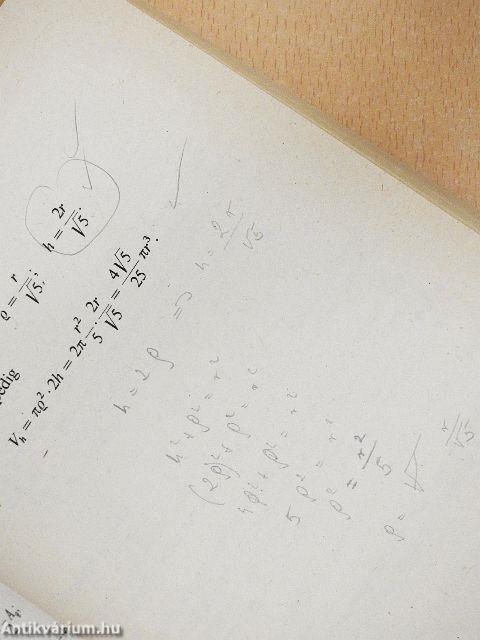 pedig
ϱ = r/√5; h = 2r/√5.
V_h = πϱ² · 2h = 2π r²/5 · 2r/√5 = 4√5/25 πr³.
h = 2ρ ⇒ h = 2r/√5
h² + ρ² = r²
(2ρ)² + ρ² = r²
4ρ² + ρ² = r²
5ρ² = r²
ρ² = r²/5
ρ = √ r/√5
Antikvárium.hu